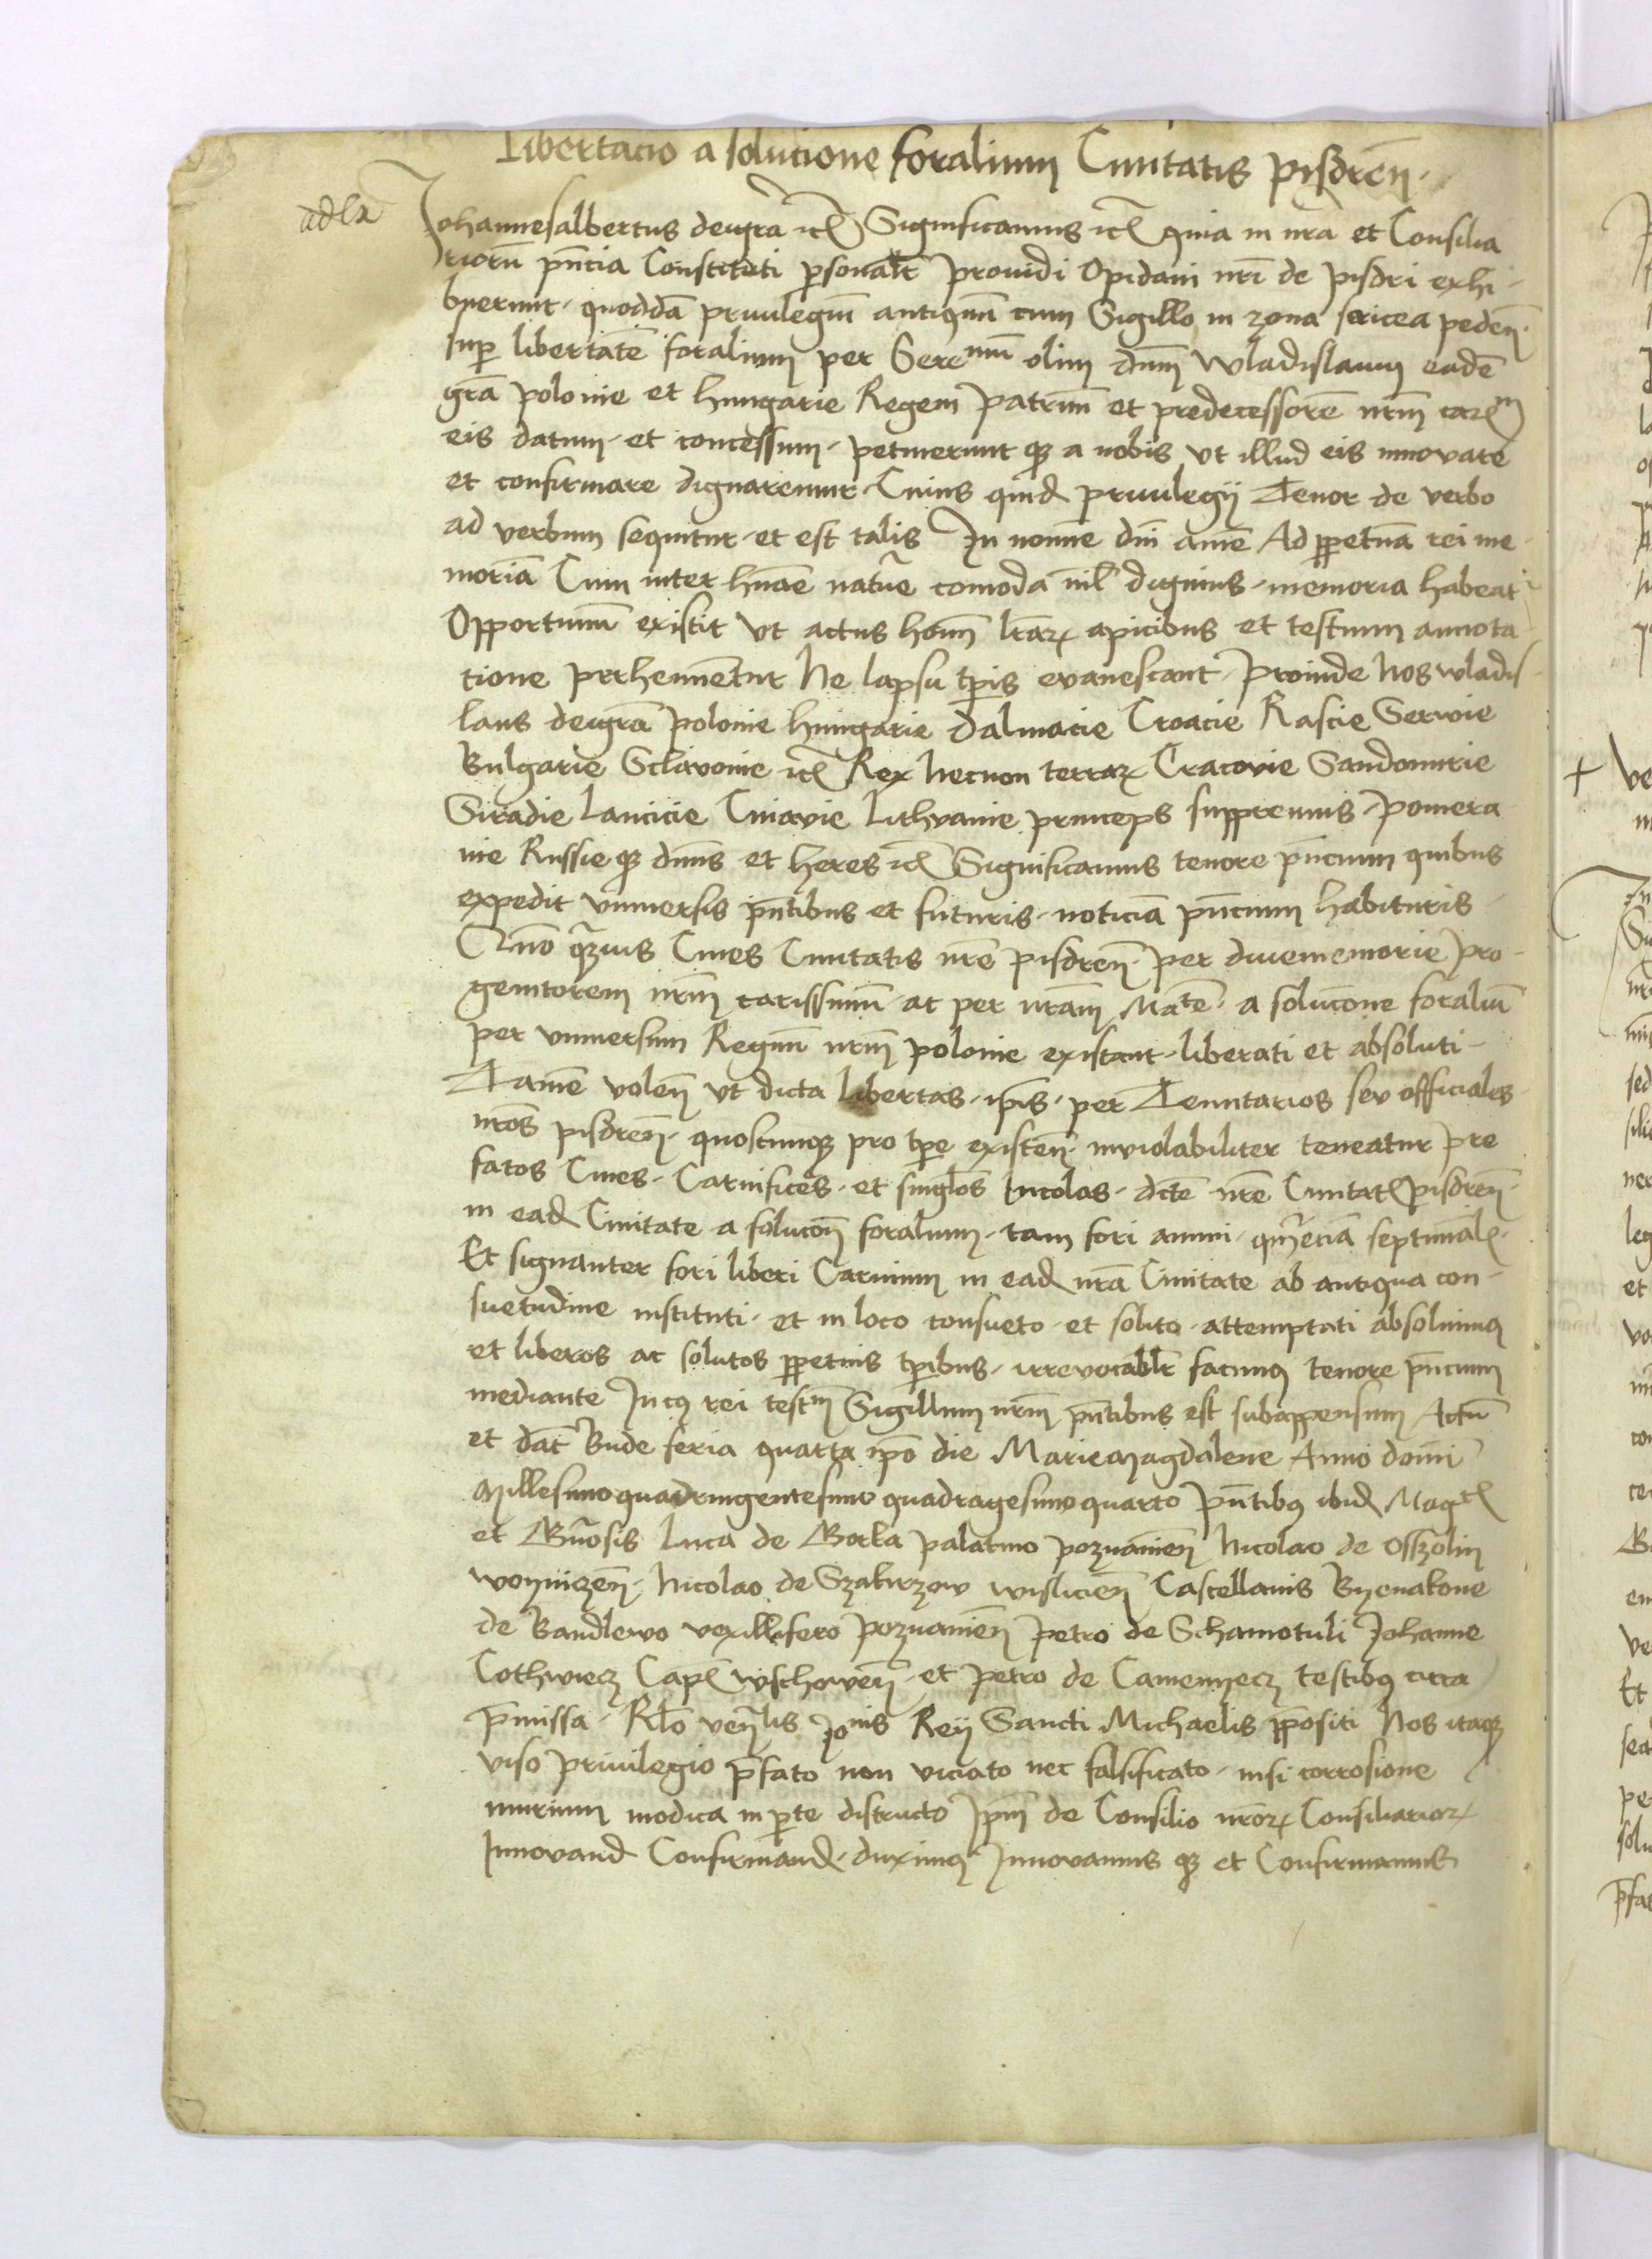 Libertacio a solucione foralium Civitatis pisdren̄.
Johannesalbertus deigra etc̄ Significamus etc̄ quia in nrā et Consilia
riorū pn̄cia Constituti personalr̄ providi Opidani nrī de pisdri exhi-
buerunt. quoddā privilegiū antiquū cum Sigillo in zona sericea peden̄.
sup libertatē foralium per Sere^mū olim dnm̄ Wladislaum eadē
grā polonie et hungarie Regem Patruū et predecessorē nrm̄ carꝫ^m
eis datum. et concessum. petiverunt qꝫ a nobis vt illud eis innovare
et confirmare dignaremur. Cuius quid privilegij Tenor de verbo
ad verbum sequitur. et est talis In nomine dnī amē Ad ꝑpetuā rei me-
moriā Cum inter hn̄ae natur̄e comoda nil̄ dignius. memoria habeat
Opportunū existit vt actus hoīm lrāꝝ apicibus et testium annota
tione perhennentur Ne lapsu tꝑis evanescant. Proinde Nos wladis-
laus deigrā polonie hungarie Dalmacie Croacie Rascie Servie
Bulgarie Sclavonie etc̄ Rex Necnon terraꝝ Cracovie Sandomirie
Siradie lancicie Cuiavie Lithvanie princeps suppremus. Pomera
nie Russie qꝫ dn̄us et heres etc̄ Significamus tenore pn̄cium quibus
expedit vniversis pn̄tibus et futuris. noticiā pn̄cium habituris
Quō qꝫvis Cives Civitatis nrē pisdren̄. per divememorie Pro-
genitorem nrm̄ carissimū. ac per nrām Matē. a solucōne foraliū
per vniversum Regnū nrm̄ polonie existant. liberati et absoluti-
Tamē volen̄ vt dicta libertas. ip̄is. per Tenutarios seu officiales
nrōs pisdren̄. quoscunqꝫ pro tp̄e existen̄. inviolabiliter teneatur Pre
fatos Cives. Carnifices. et singlōs incolas. dctē nrē Civitatꝭ pisdren̄.
in ead Civitate a solucōn foralium. tam fori annui. qm̄eciā septimalꝭ.
Et signanter fori liberi Carnium in ead nrā Civitate ab antiqua con-
suetudine instituti. et in loco consueto. et solito. attemptati absolvimꝰ
et liberos ac solutos ꝑpetuis tꝑibus. irrevocablr̄ facimꝰ tenore pn̄cium
mediante In cꝰ rei test^m Sigillum nrm̄ pn̄tibus est subappensum Actū
et dat̄ Bude feria quarta ip̄o die Mariemagdalene Anno domī
Millesimoquadringentesimo quadragesimoquarto pn̄tibꝰ ibid Magcꝭ
et Gn̄rosis Luca de Gorka palatino poznanien̄ Nicolao de Osszolin
woyniczen̄. Nicolao de Szakrzow wislicien̄ Castellanis Byenakone
de Bandlewo vexillifero Poznanien̄ Petro de Schamotuli Johanne
Cothwicz Capꝭ wschoven̄. et Petro de Camenyecz testibꝰ circa
p̄missa. Rlō ven̄lis Jo^nis Rey Sancti Michaelis p̄positi Nos itaqꝫ
viso privilegio p̄fato non viciato nec falsificato. nisi corrosione
murium modica in ꝑte distructo Ip̄m de Consilio nrōꝝ Consiliarioꝝ
Innovand Confirmand. duximꝰ Innovamus qꝫ et Confirmamus